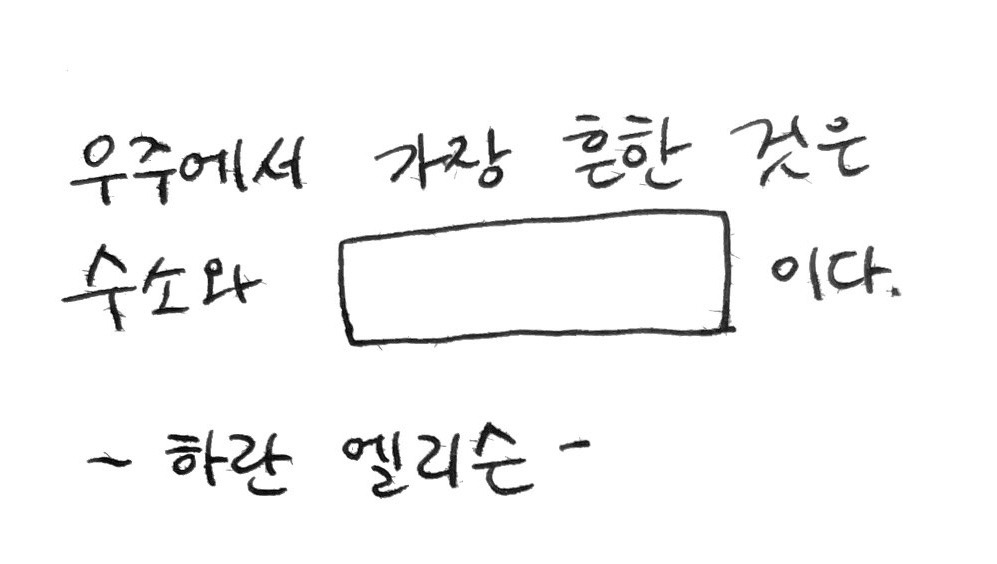 우주에서 가장 흔한 것은
수소와 이다.
~ 하란 엘리슨 -